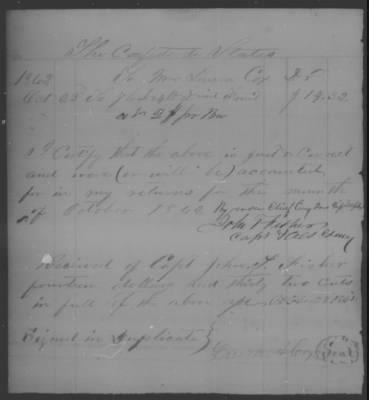 The Confederate States
1862 To Mrs Louisa Cox Dr
Oct 25 To
at 2 $ per Bu
I Certify that the above is just & correct
and were (or will be) accounted
for in my returns for this month
of October 1862 By order Chief
John F Fisher
Capt & ACS
Received of Capt John F. Fisher
fourteen dollars and thirty two cents
in full of the above
Signed in Duplicate }
Cox Seal